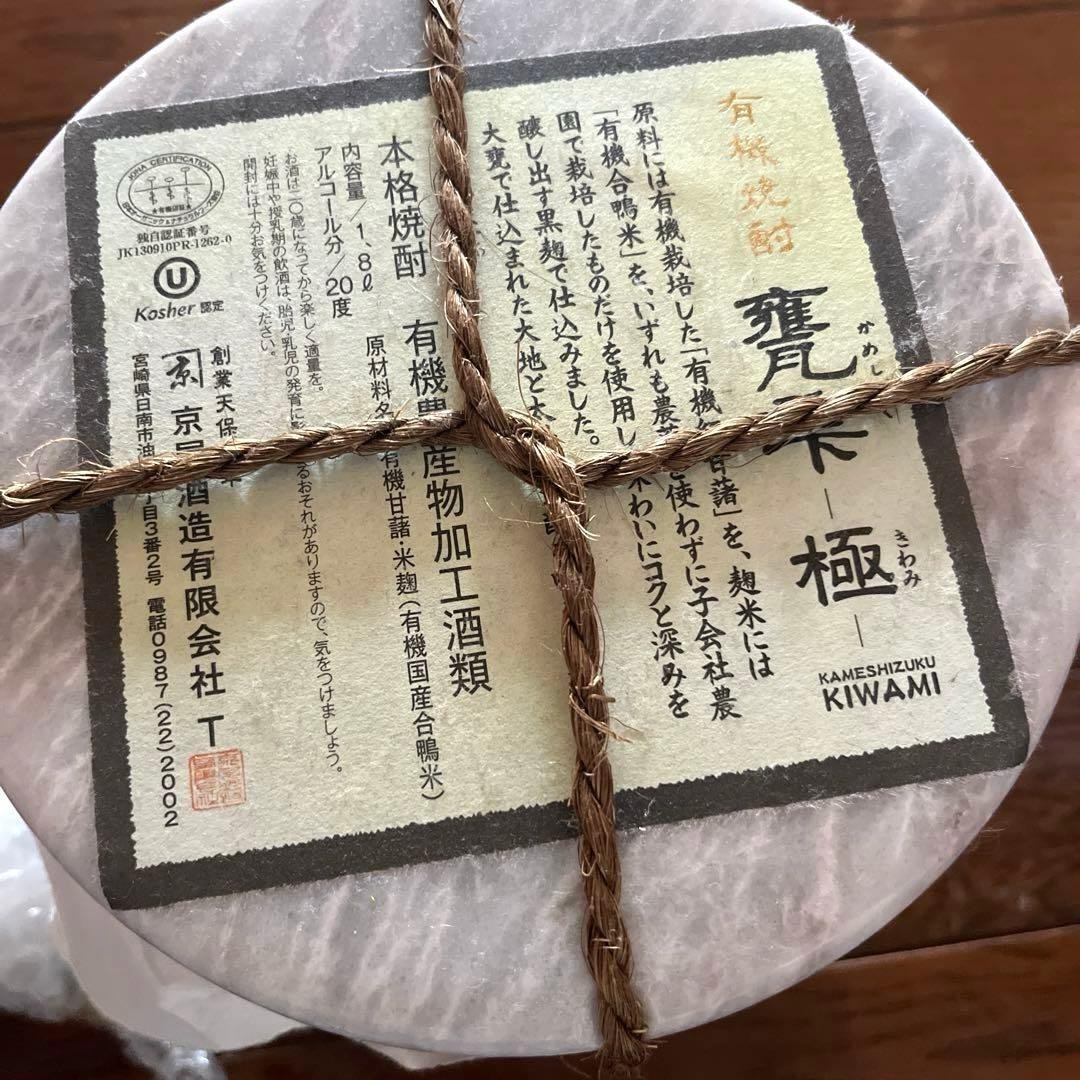 有機焼酎
甕雫
かめし
極
きわみ
KAMESHIZUKU
KIWAMI
原料には有機栽培した「有機 藷」を、麹米には
「有機合鴨米」を、いずれも農薬を使わずに子会社農
園で栽培したものだけを使用し
醸し出す黒麹で仕込みました。 味わいにコクと深みを
大甕で仕込まれた大地と太
本格焼酎 有機農産物加工酒類
内容量／1、8ℓ 原材料名 有機甘藷・米麹（有機国産合鴨米）
アルコール分／20度
お酒は二〇歳になってから楽しく適量を。
妊娠中や授乳期の飲酒は、胎児・乳児の発育に影 るおそれがありますので、気をつけましょう。
開封には十分お気をつけください。
JONA CERTIFICATION
★有機認証★
独自認証番号
JK130910PR-1262-0
U
Kosher 認定
創業天保
京屋酒造有限会社 T
宮崎県日南市油 丁目3番2号 電話0987(22)2002